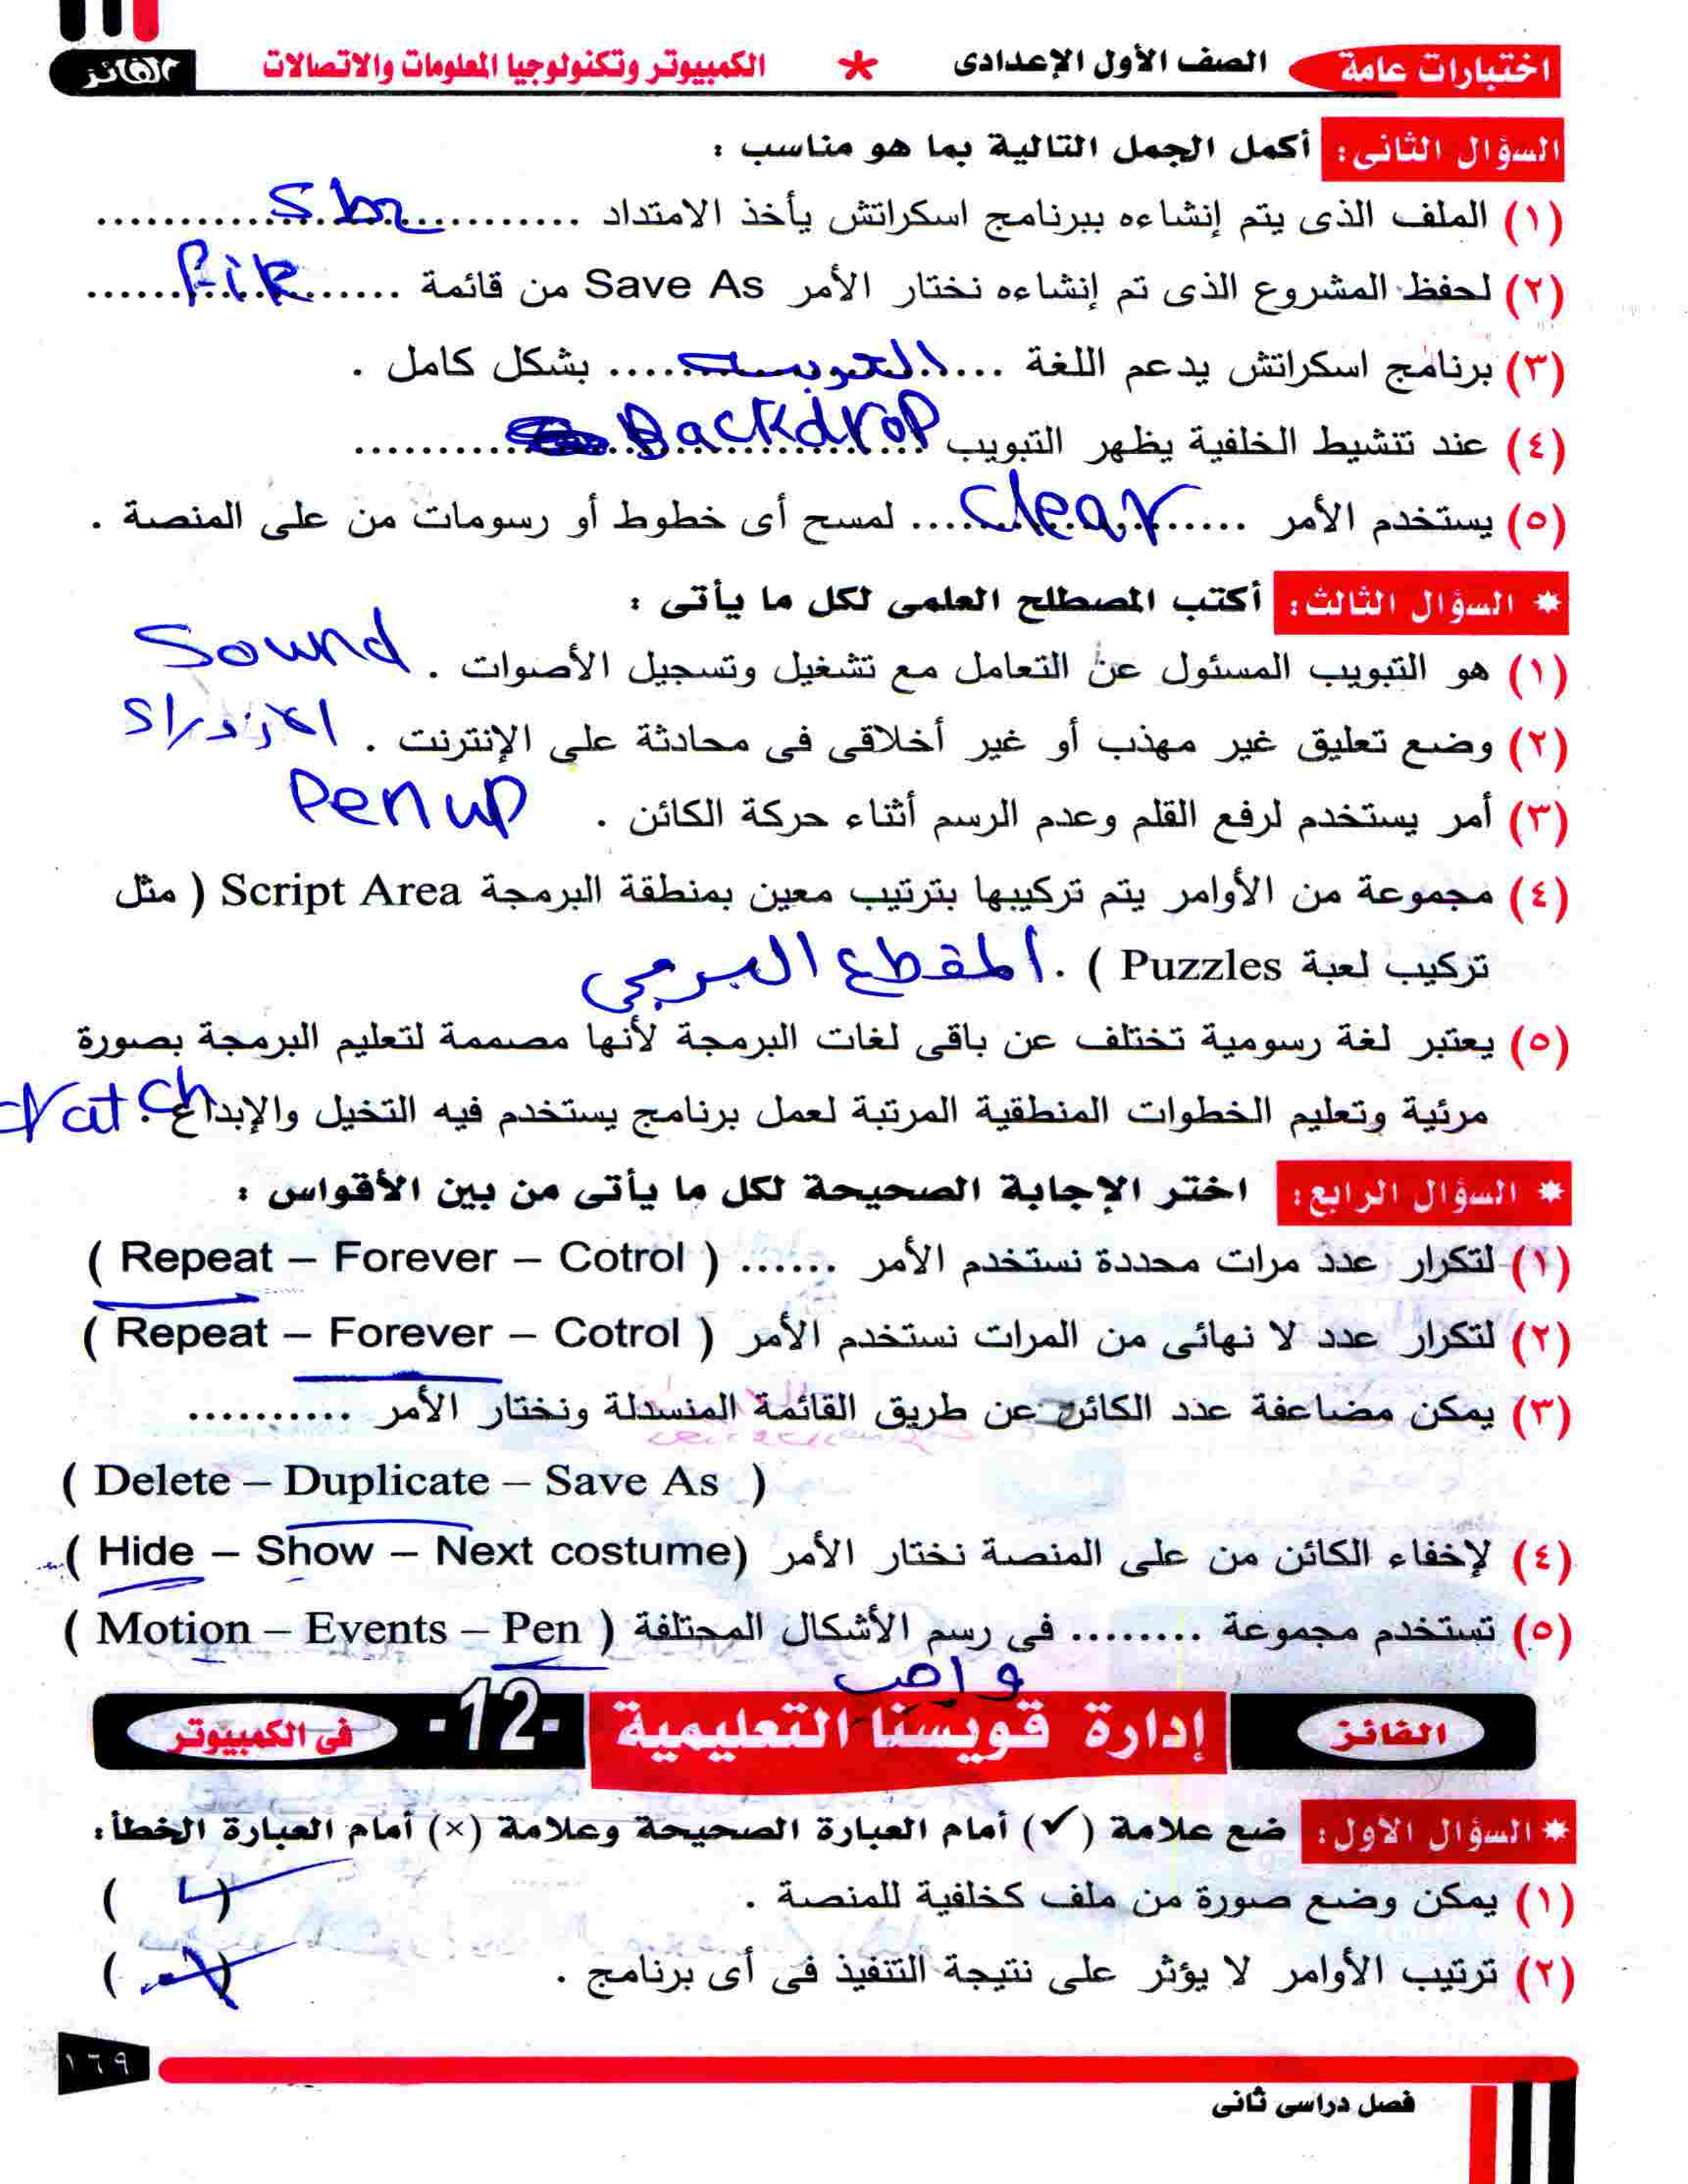 اختبارات عامة الصف الأول الإعدادى * الكمبيوتر وتكنولوجيا المعلومات والاتصالات الفائز
السؤال الثانى: أكمل الجمل التالية بما هو مناسب :
(١) الملف الذى يتم إنشاءه ببرنامج اسكراتش يأخذ الامتداد ........ Sb2 ........
(٢) لحفظ المشروع الذى تم إنشاءه نختار الأمر Save As من قائمة ........ File ........
(٣) برنامج اسكراتش يدعم اللغة ........ العربية ........ بشكل كامل .
(٤) عند تنشيط الخلفية يظهر التبويب ........ Backdrop ........
(٥) يستخدم الأمر ........ Clear ........ لمسح أى خطوط أو رسومات من على المنصة .
* السؤال الثالث: أكتب المصطلح العلمى لكل ما يأتى :
(١) هو التبويب المسئول عن التعامل مع تشغيل وتسجيل الأصوات . Sound
(٢) وضع تعليق غير مهذب أو غير أخلاقى فى محادثة على الإنترنت . الازدراء
(٣) أمر يستخدم لرفع القلم وعدم الرسم أثناء حركة الكائن . Pen up
(٤) مجموعة من الأوامر يتم تركيبها بترتيب معين بمنطقة البرمجة Script Area ( مثل
تركيب لعبة Puzzles ) . المقطع البرمجي
(٥) يعتبر لغة رسومية تختلف عن باقى لغات البرمجة لأنها مصممة لتعليم البرمجة بصورة
مرئية وتعليم الخطوات المنطقية المرتبة لعمل برنامج يستخدم فيه التخيل والإبداع . ratch
* السؤال الرابع: اختر الإجابة الصحيحة لكل ما يأتى من بين الأقواس :
(١) لتكرار عدد مرات محددة نستخدم الأمر ...... ( Repeat – Forever – Cotrol )
(٢) لتكرار عدد لا نهائى من المرات نستخدم الأمر ( Repeat – Forever – Cotrol )
(٣) يمكن مضاعفة عدد الكائن عن طريق القائمة المنسدلة ونختار الأمر ..........
( Delete – Duplicate – Save As )
(٤) لإخفاء الكائن من على المنصة نختار الأمر ( Hide – Show – Next costume)
(٥) تستخدم مجموعة ........ فى رسم الأشكال المختلفة ( Motion – Events – Pen )
واجب
الفائز إدارة قويسنا التعليمية -12- فى الكمبيوتر
* السؤال الاول: ضع علامة (✓) أمام العبارة الصحيحة وعلامة (×) أمام العبارة الخطأ:
(١) يمكن وضع صورة من ملف كخلفية للمنصة . ( ✓ )
(٢) ترتيب الأوامر لا يؤثر على نتيجة التنفيذ فى أى برنامج . ( × )
١٦٩
فصل دراسى ثانى